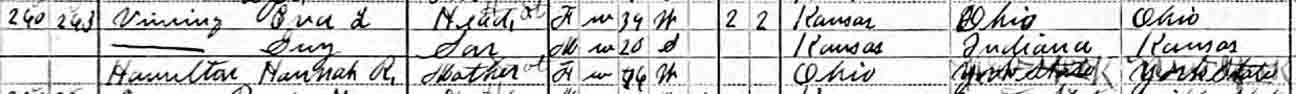 240 243 Vining Eva L Head F W 39 W 2 2 Kansas Ohio Ohio
Guy Son M W 20 S Kansas Indiana Kansas
Hamilton Hannah R. Mother F W W Ohio York State York State